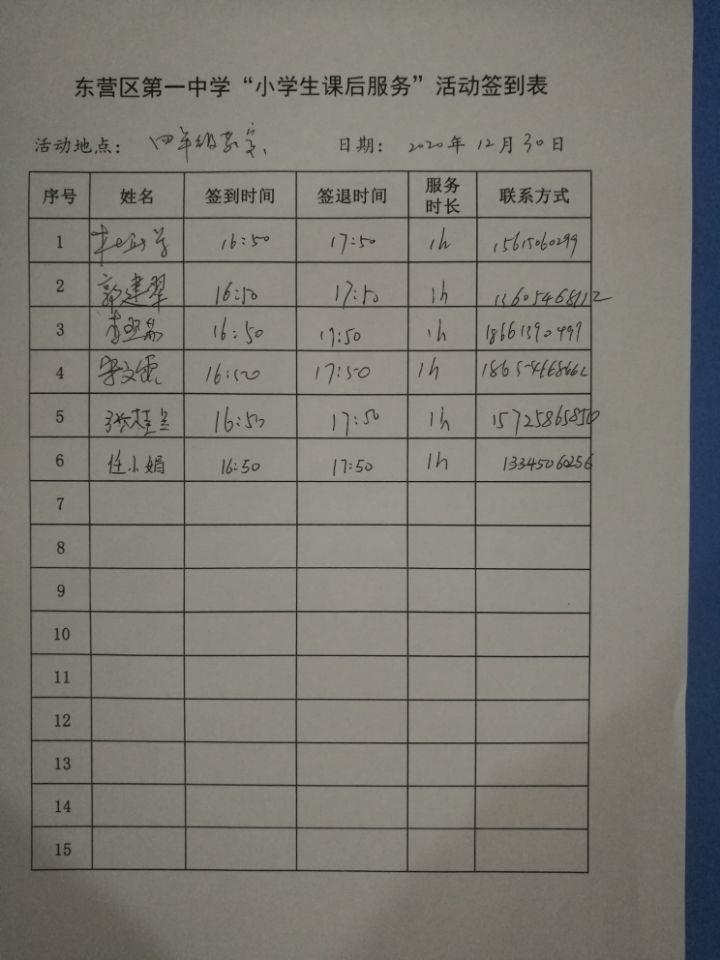 东营区第一中学“小学生课后服务”活动签到表
活动地点： 四年级教室 日期： 2020年12月30日
序号 姓名 签到时间 签退时间 服务时长 联系方式
1 16:50 17:50 1h 15615060299
2 郭建翠 16:50 17:50 1h 13605468112
3 16:50 17:50 1h 18661390497
4 宋文霞 16:50 17:50 1h
5 张桂兰 16:50 17:50 1h 15725865850
6 任小娟 16:50 17:50 1h 13345060256
7
8
9
10
11
12
13
14
15